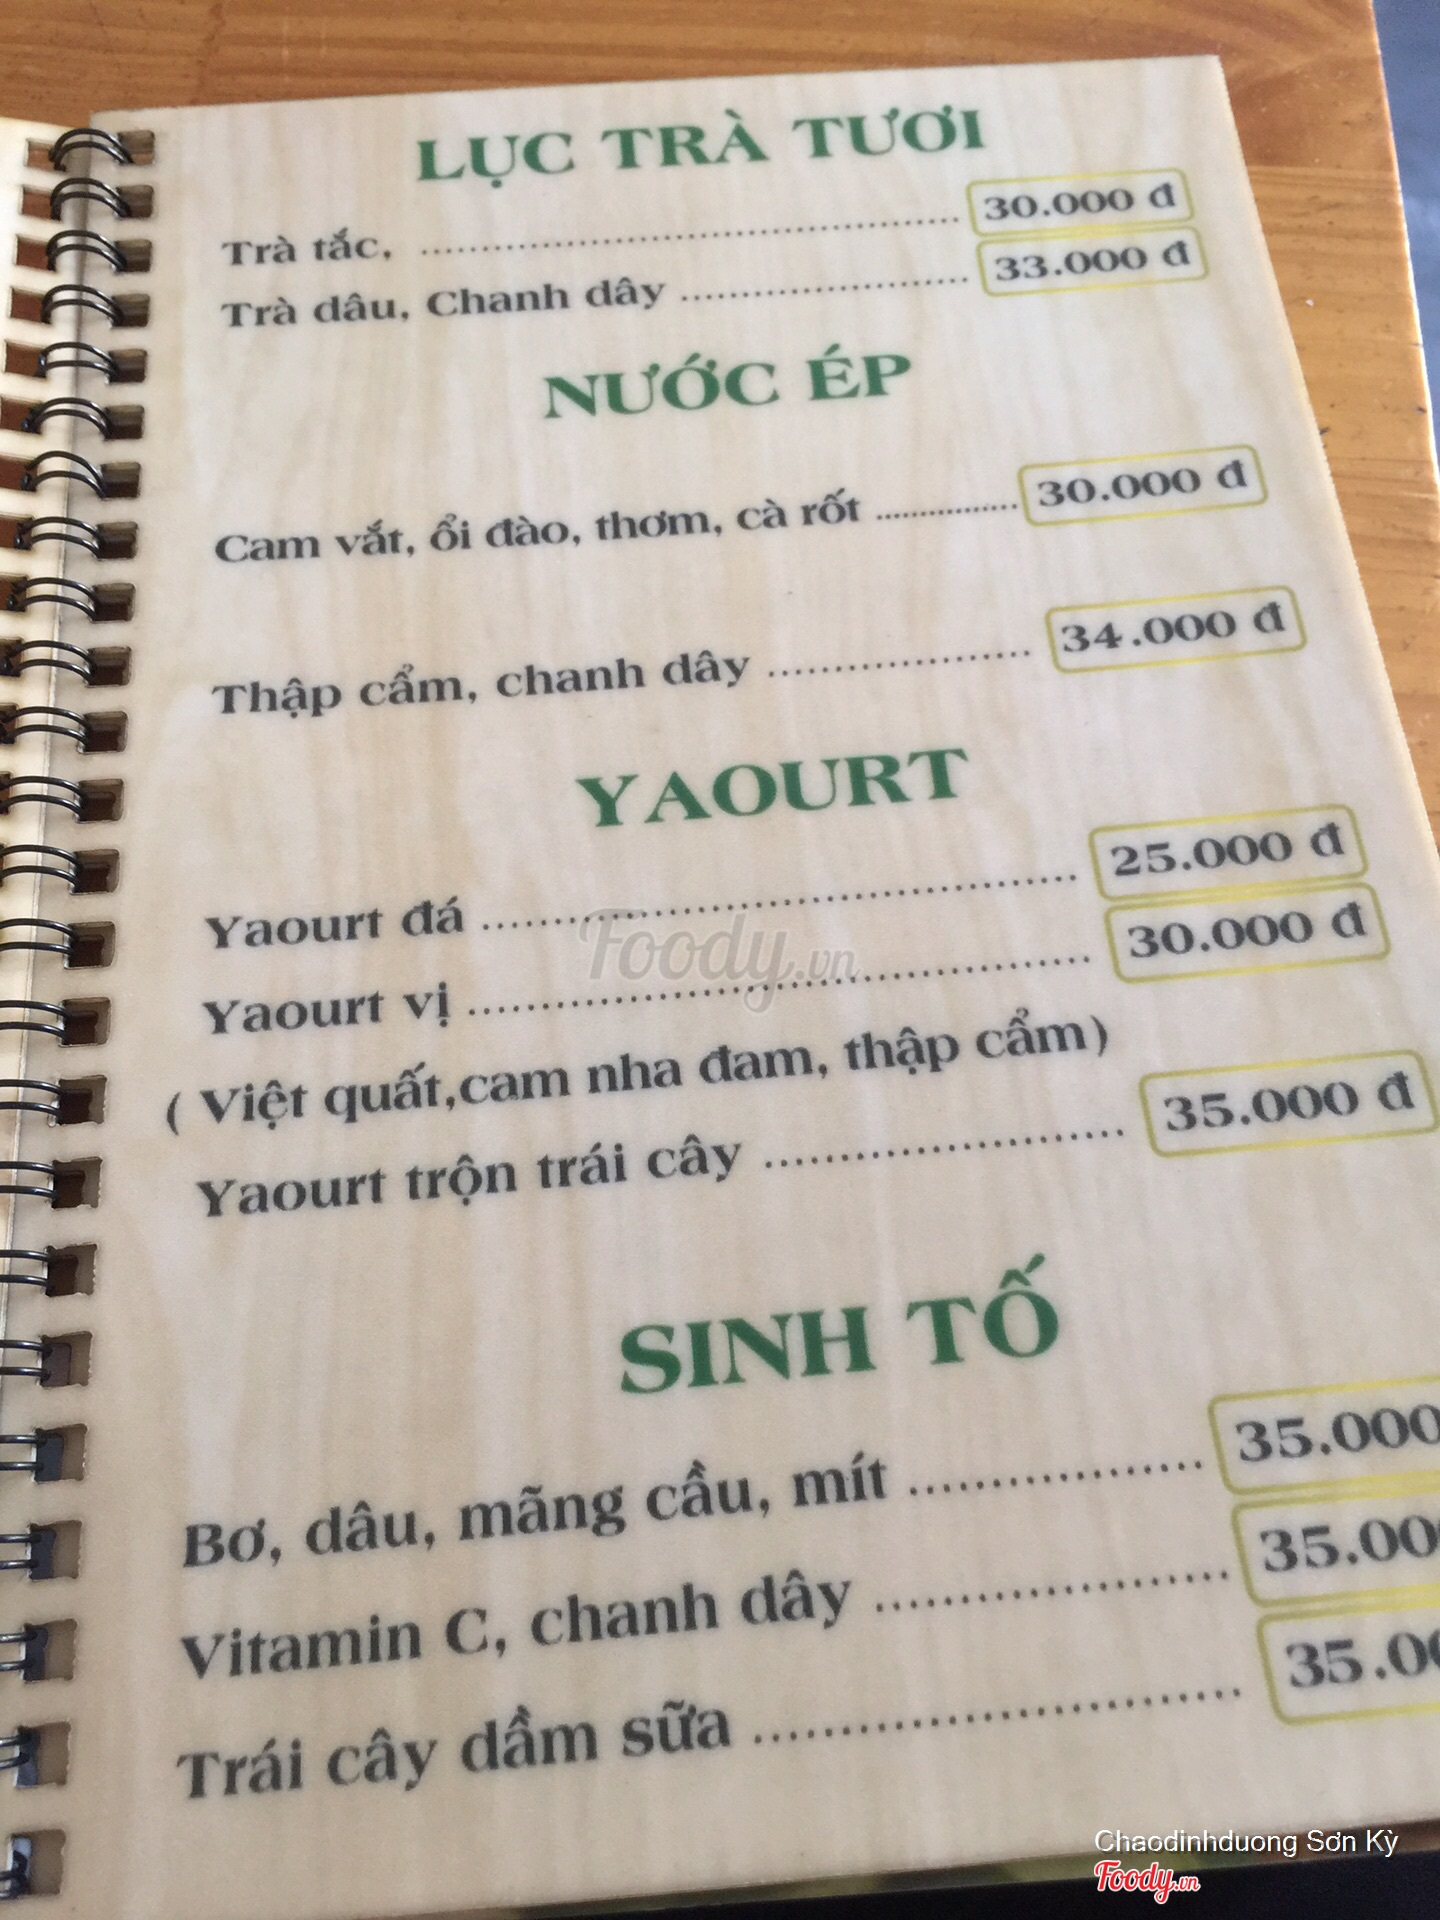 LỤC TRÀ TƯƠI
Trà tắc, ........................................ 30.000 đ
Trà dâu, Chanh dây ..................... 33.000 đ
NƯỚC ÉP
Cam vắt, ổi đào, thơm, cà rốt ................. 30.000 đ
Thập cẩm, chanh dây ................... 34.000 đ
YAOURT
Yaourt đá ........................................ 25.000 đ
Yaourt vị ........................................ 30.000 đ
( Việt quất,cam nha đam, thập cẩm)
Yaourt trộn trái cây ......................... 35.000 đ
SINH TỐ
Bơ, dâu, mãng cầu, mít .................... 35.000
Vitamin C, chanh dây ....................... 35.00
Trái cây dầm sữa .............................. 35.00
Foody.vn
Chaodinhduong Sơn Kỳ
Foody.vn